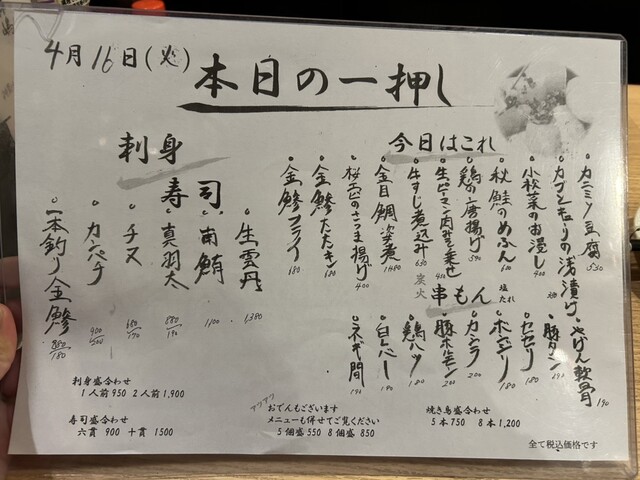 4月16日(火)
本日の一押し
今日はこれ
カニミソ豆腐 530
カブとキュウリの浅漬け
小松菜のお浸し 400
秋鮭のめふん 600
鶏の唐揚げ 590
生ピーマン肉みそ乗せ 400
牛すじ煮込み 630
金目鯛姿煮 1480
桜エビのさつま揚げ 400
金鯵たたき 680
金鯵フライ 680
炭火
串もん
塩 たれ
やげん軟骨 190
豚タン 190
セセリ 180
ボンジリ 180
カシラ 200
豚ホルモン 200
鶏ハツ 180
白レバー 180
ネギ間 190
刺身
寿司
生雲丹 1,380
南鮪 1100
真羽太 880/190
チヌ 680/190
カンパチ 900/200
一本釣り金鯵 880/180
刺身盛合わせ
1人前 950 2人前 1,900
寿司盛合わせ
六貫 900 十貫 1500
アツアツ
おでんもございます
メニューも併せてご覧ください
5個盛 550 8個盛 850
焼き鳥盛合わせ
5本 750 8本 1,200
全て税込価格です